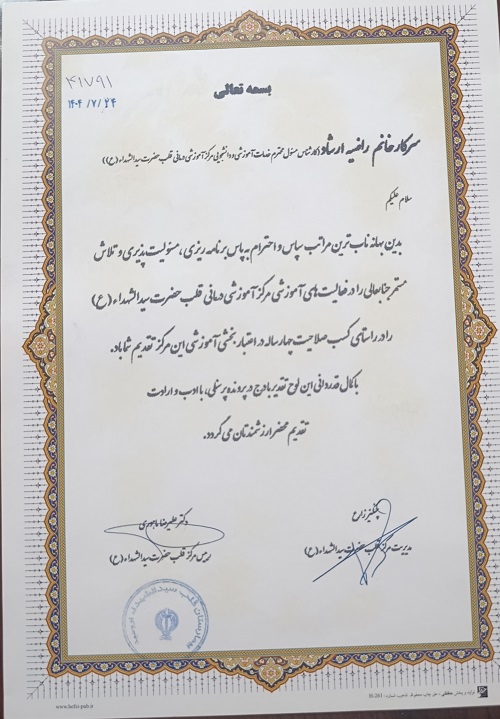 ۴۱۷۹۱
۱۴۰۴/۷/۲۴
بسمه تعالی
سرکار خانم راضیه ارشاد (کارشناس مسئول محترم خدمات آموزشی و دانشجویی مرکز آموزشی درمانی قلب حضرت سیدالشهداء (ع))
سلام علیکم
بدین بهانه ناب ترین مراتب سپاس و احترام به پاس برنامه ریزی، مسئولیت پذیری و تلاش
مستمر جنابعالی را در فعالیت های آموزشی مرکز آموزشی درمانی قلب حضرت سیدالشهداء (ع)
را در راستای کسب صلاحیت چهار ساله در اعتبار بخشی آموزشی این مرکز تقدیم شما باد.
با کمال قدردانی این لوح تقدیر با درج در پرونده پرسنلی، با ادب و ارادت
تقدیم محضر ارزشمندتان می گردد.
چنگیز زارع
مدیریت مرکز قلب حضرت سیدالشهداء (ع)
دکتر علیرضا ماهوری
رییس مرکز قلب حضرت سیدالشهداء (ع)
بیمارستان قلب سیدالشهداء ارومیه
www.hefzi-pub.ir